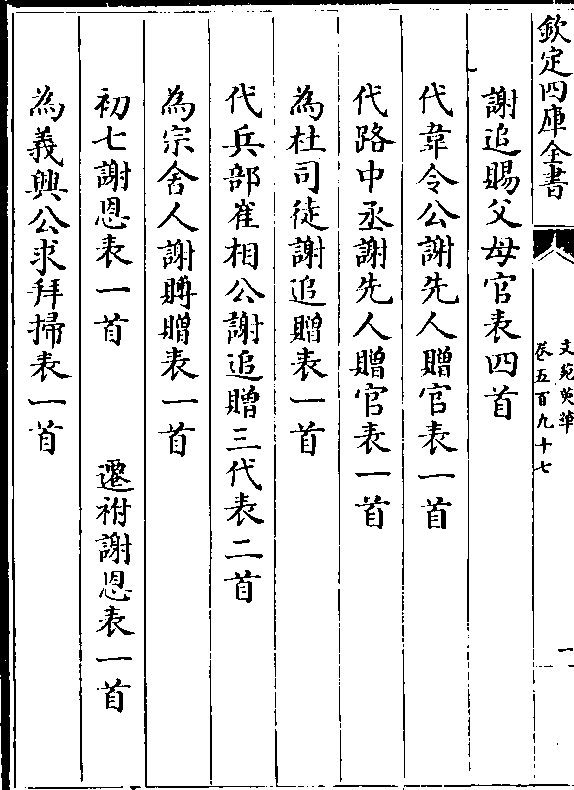 欽定四庫全書
文苑英華
卷五百九十七
一
謝追賜父母官表四首
代韋令公謝先人贈官表一首
代路中丞謝先人贈官表一首
為杜司徒謝追贈表一首
代兵部崔相公謝追贈三代表二首
為宗舍人謝賻贈表一首
初七謝恩表一首 遷祔謝恩表一首
為義興公求拜掃表一首